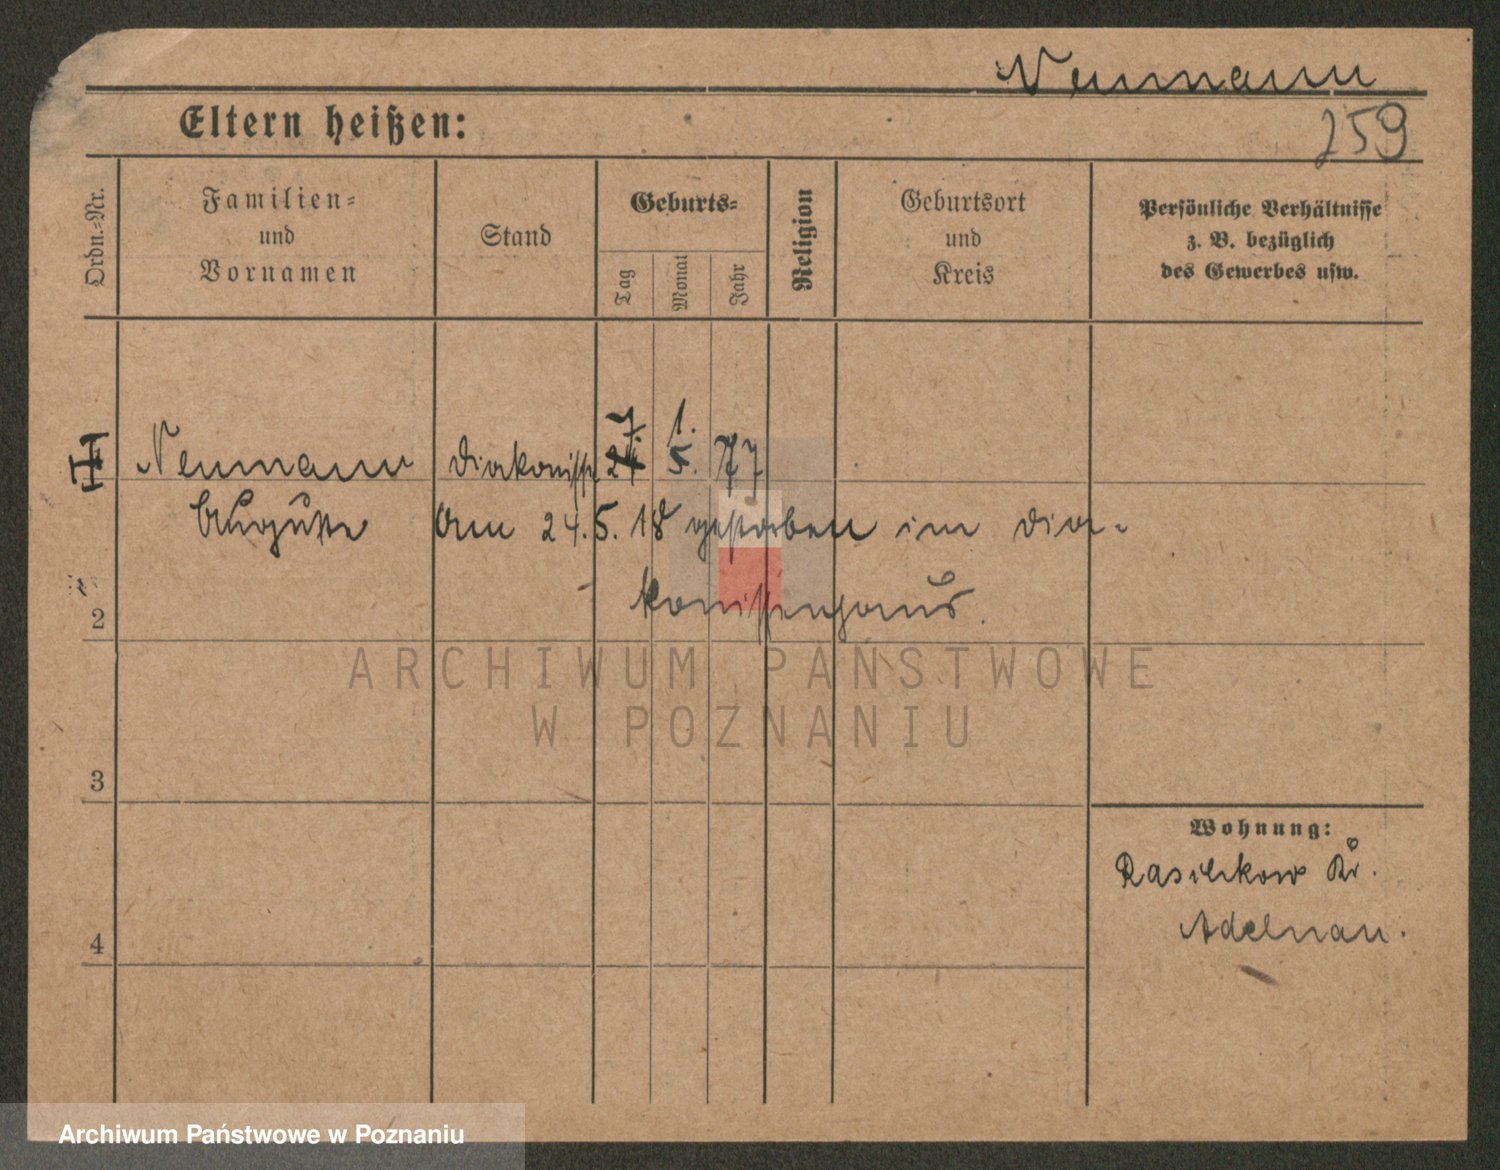 Neumann
259
Eltern heißen:
Ordn.-Nr.
Familien-
und
Vornamen
Stand
Geburts-
Tag
Monat
Jahr
Religion
Geburtsort
und
Kreis
Persönliche Verhältnisse
z. B. bezüglich
des Gewerbes usw.
7. 1.
Neumann Diakonisse 24. 5. 77
Auguste Am 24. 5. 18 gestorben im Dia-
2 konissenhaus.
ARCHIWUM PAŃSTWOWE
W POZNANIU
3
Wohnung:
Raschkow Kr.
4 Adelnau.
Archiwum Państwowe w Poznaniu